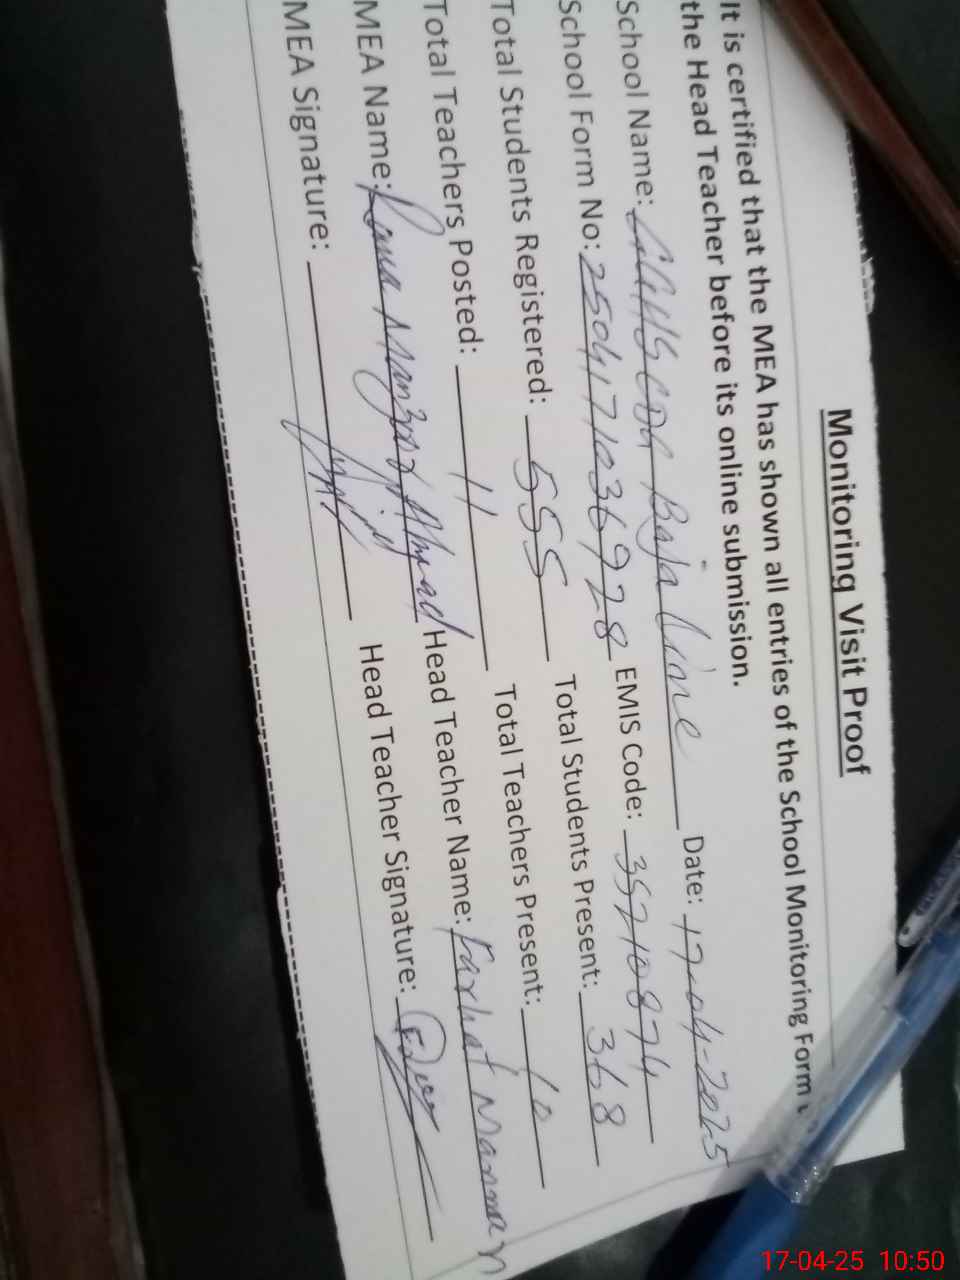 Monitoring Visit Proof
It is certified that the MEA has shown all entries of the School Monitoring Form
the Head Teacher before its online submission.
School Name: Baja Line Date: 17-04-2025
School Form No: 25041710369 28 EMIS Code: 35210874
Total Students Registered: 555 Total Students Present: 368
Total Teachers Posted: 11 Total Teachers Present: 10
MEA Name: Rana Manzoor Ahmad Head Teacher Name: Farhat Mannan
MEA Signature: Head Teacher Signature:
17-04-25 10:50